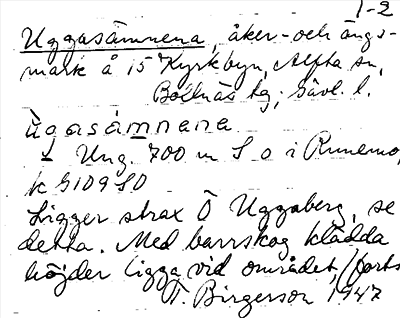 1-2
Uggasämnena, åker- och ängs-
mark å 15 Kyrkbyn, Alfta sn,
Bollnäs tg, Gävl. l.
ùgasámnana
Ung. 700 m S o i Runemo,
k G109 SO
Ligger strax Ö Uggaberg, se
detta. Med barrskog klädda
höjder ligga vid området, (forts
T. Birgerson 1947